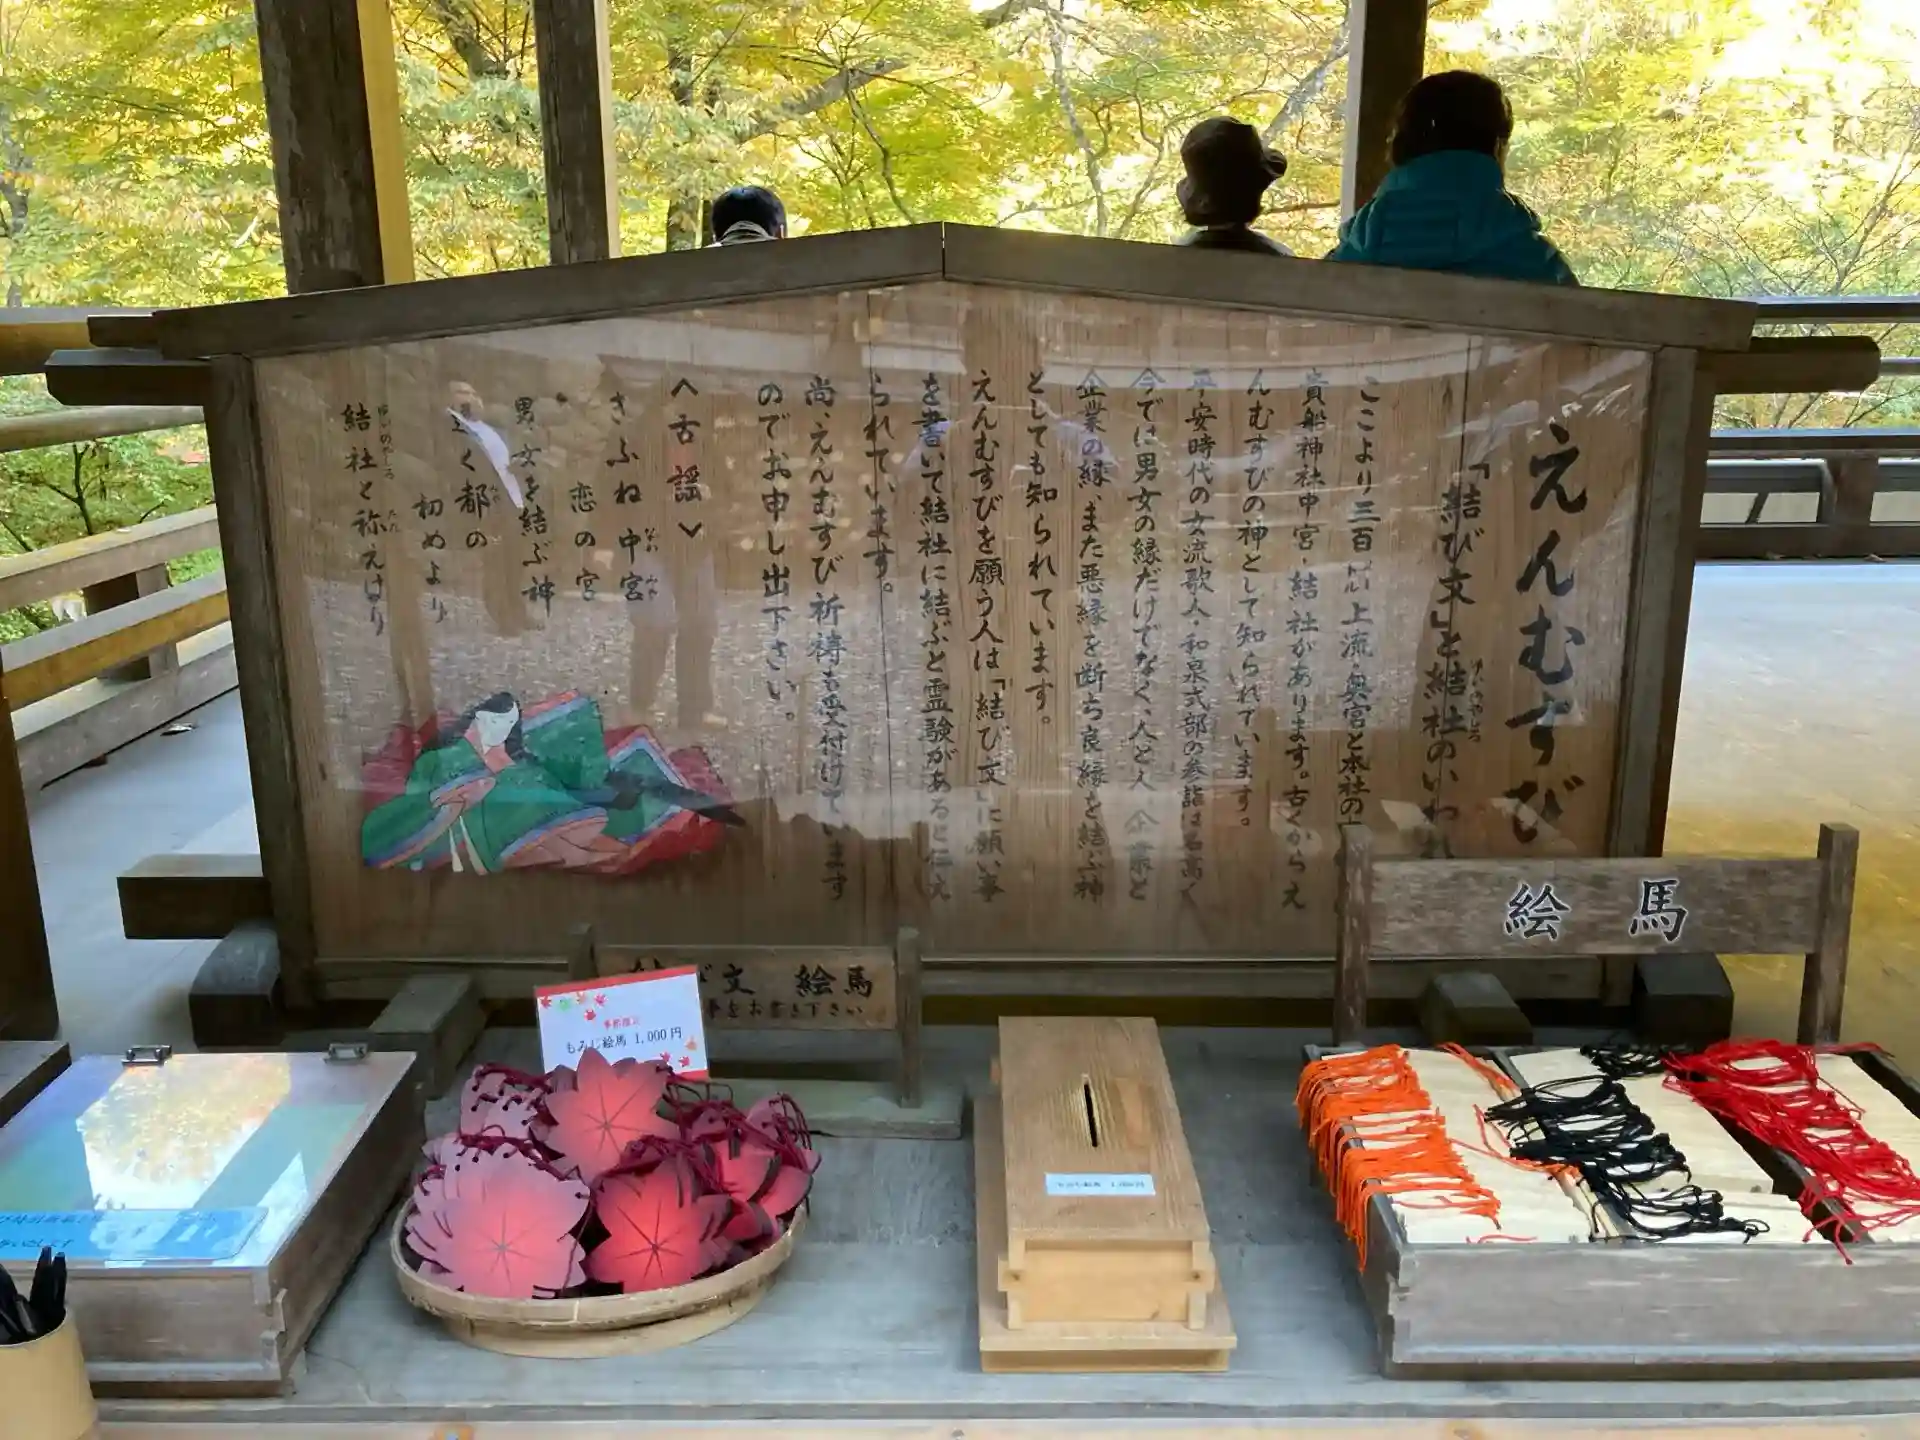 えんむすび
「結び文」と結社のいわれ
ゆいのやしろ
ここより三百 上流・奥宮と本社の
貴船神社中宮・結社があります。古くからえ
んむすびの神として知られています。
平安時代の女流歌人・和泉式部の参詣は名高く
今では男女の縁だけでなく、人と人、企業と
企業の縁、また悪縁を断ち良縁を結ぶ神
としても知られています。
えんむすびを願う人は「結び文」に願い事
を書いて結社に結ぶと霊験があると伝え
られています。
尚、えんむすび祈祷も受付けています
のでお申し出下さい。
<古謡>
きふね中宮
なか みや
恋の宮
男女を結ぶ神
く都の
初めより
結社と称えけり
ゆいのやしろ たた
絵馬
び文 絵馬
をお書き下さい
季節限定
もみじ絵馬 1,000円
もみじ絵馬 1,000円